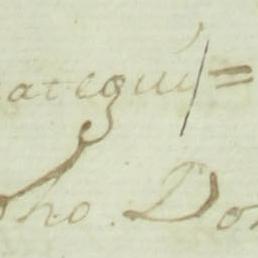 ategui=
oho. Do